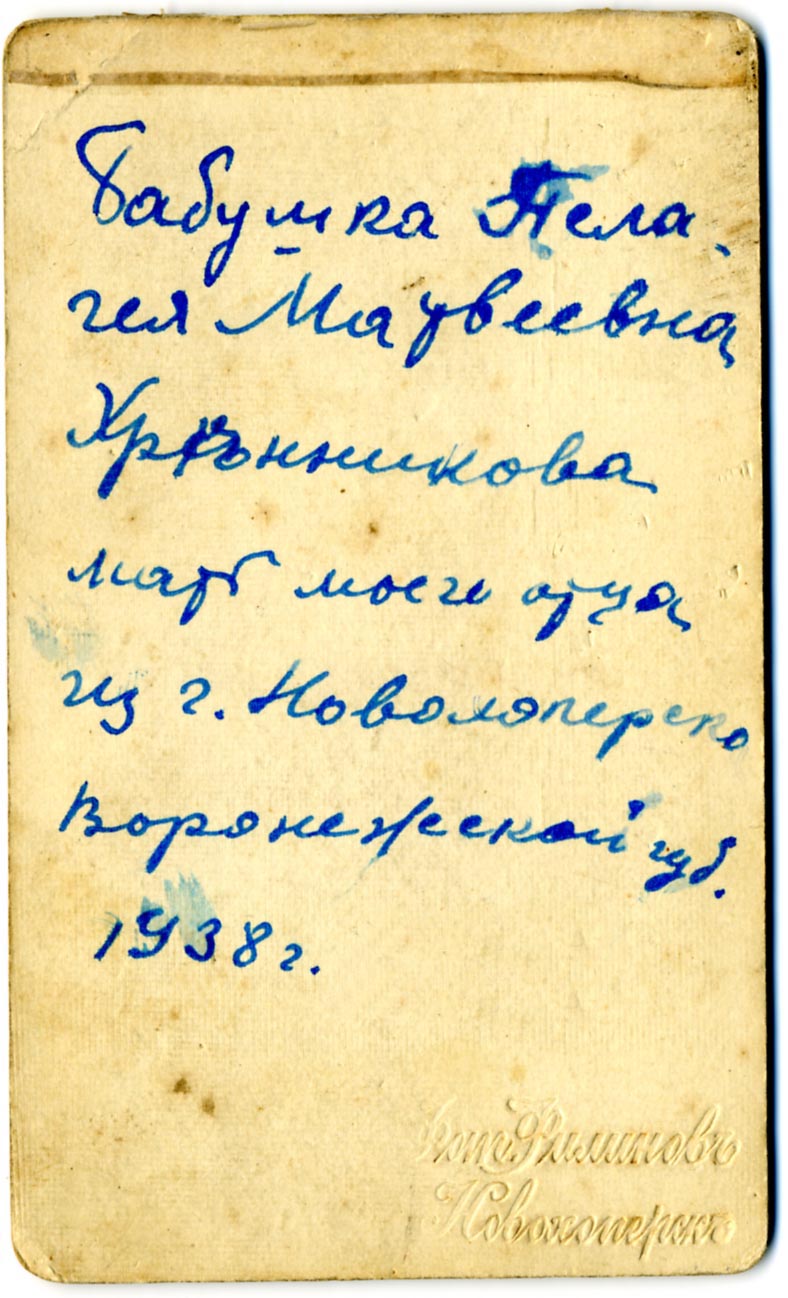 Бабушка Пела-
гея Матвеевна
Хрѣнникова
мать моего отца
из г. Новохоперска
Воронежской губ.
1938 г.
Филиновъ
Новохоперскъ